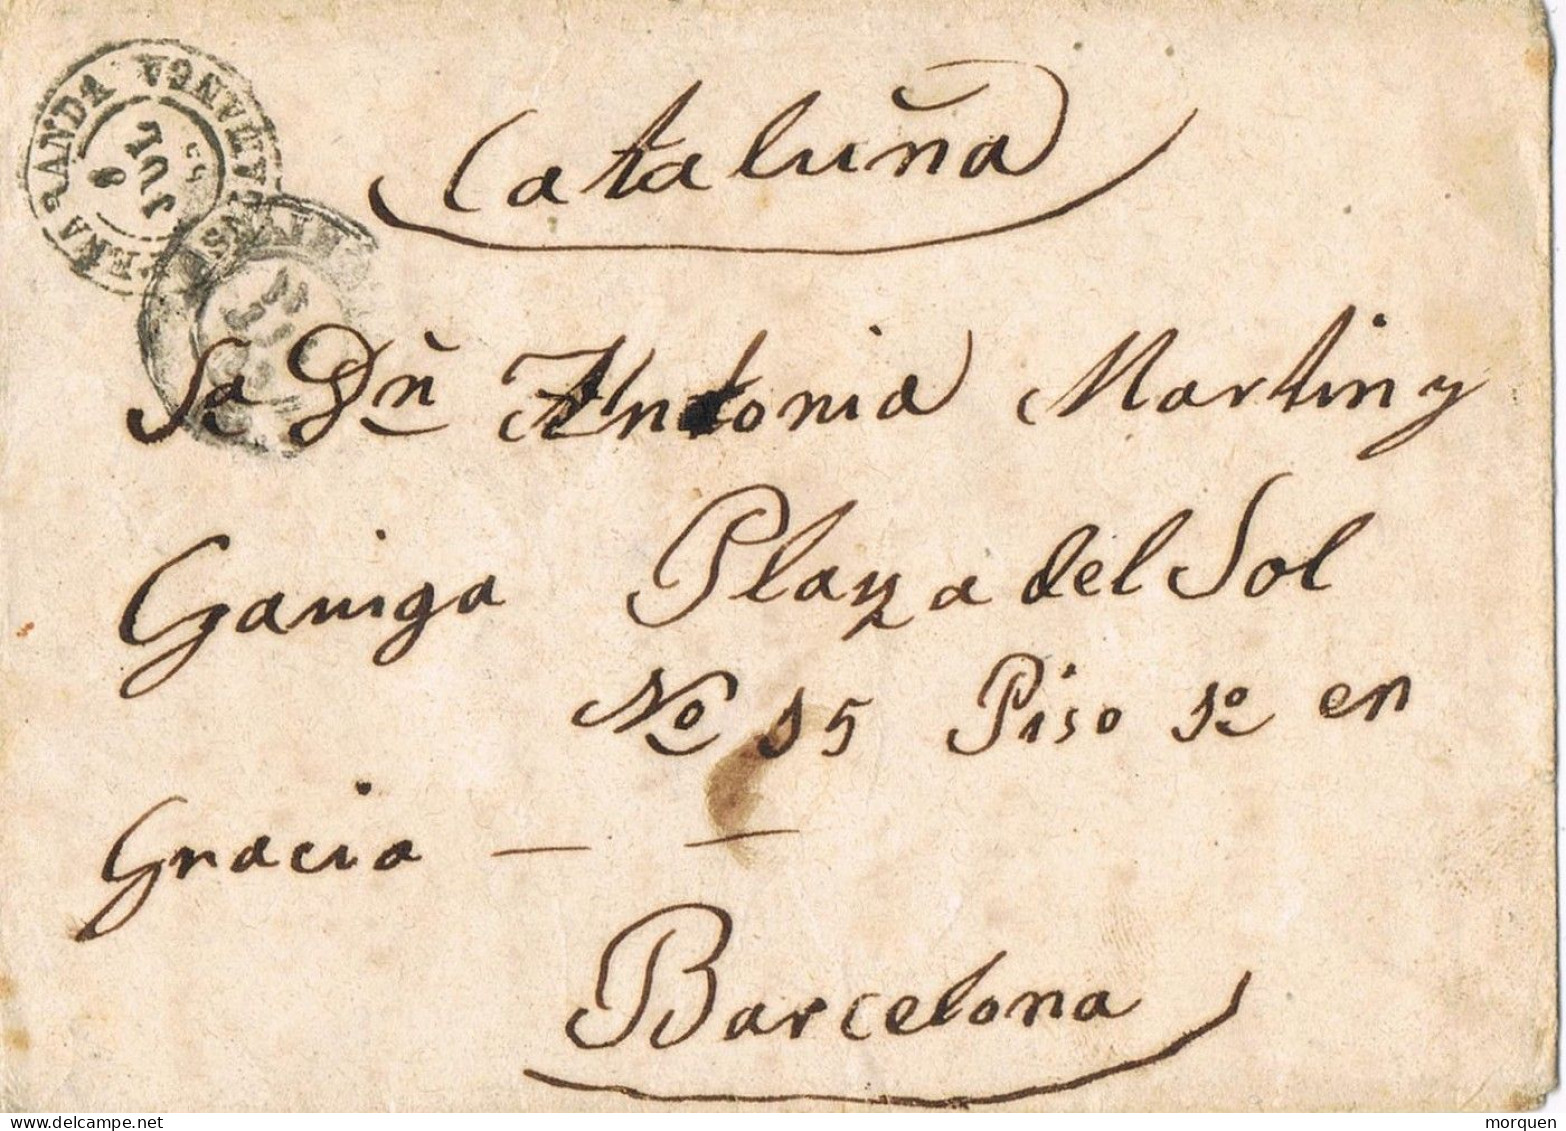 PEÑARANDA SALAMANCA
8 JUL 85
Cataluña
Sa Dñ Antonia Martin y
Ganiga Plaza del Sol
No 15 Piso 1º en
Gracia — —
Barcelona
morquen